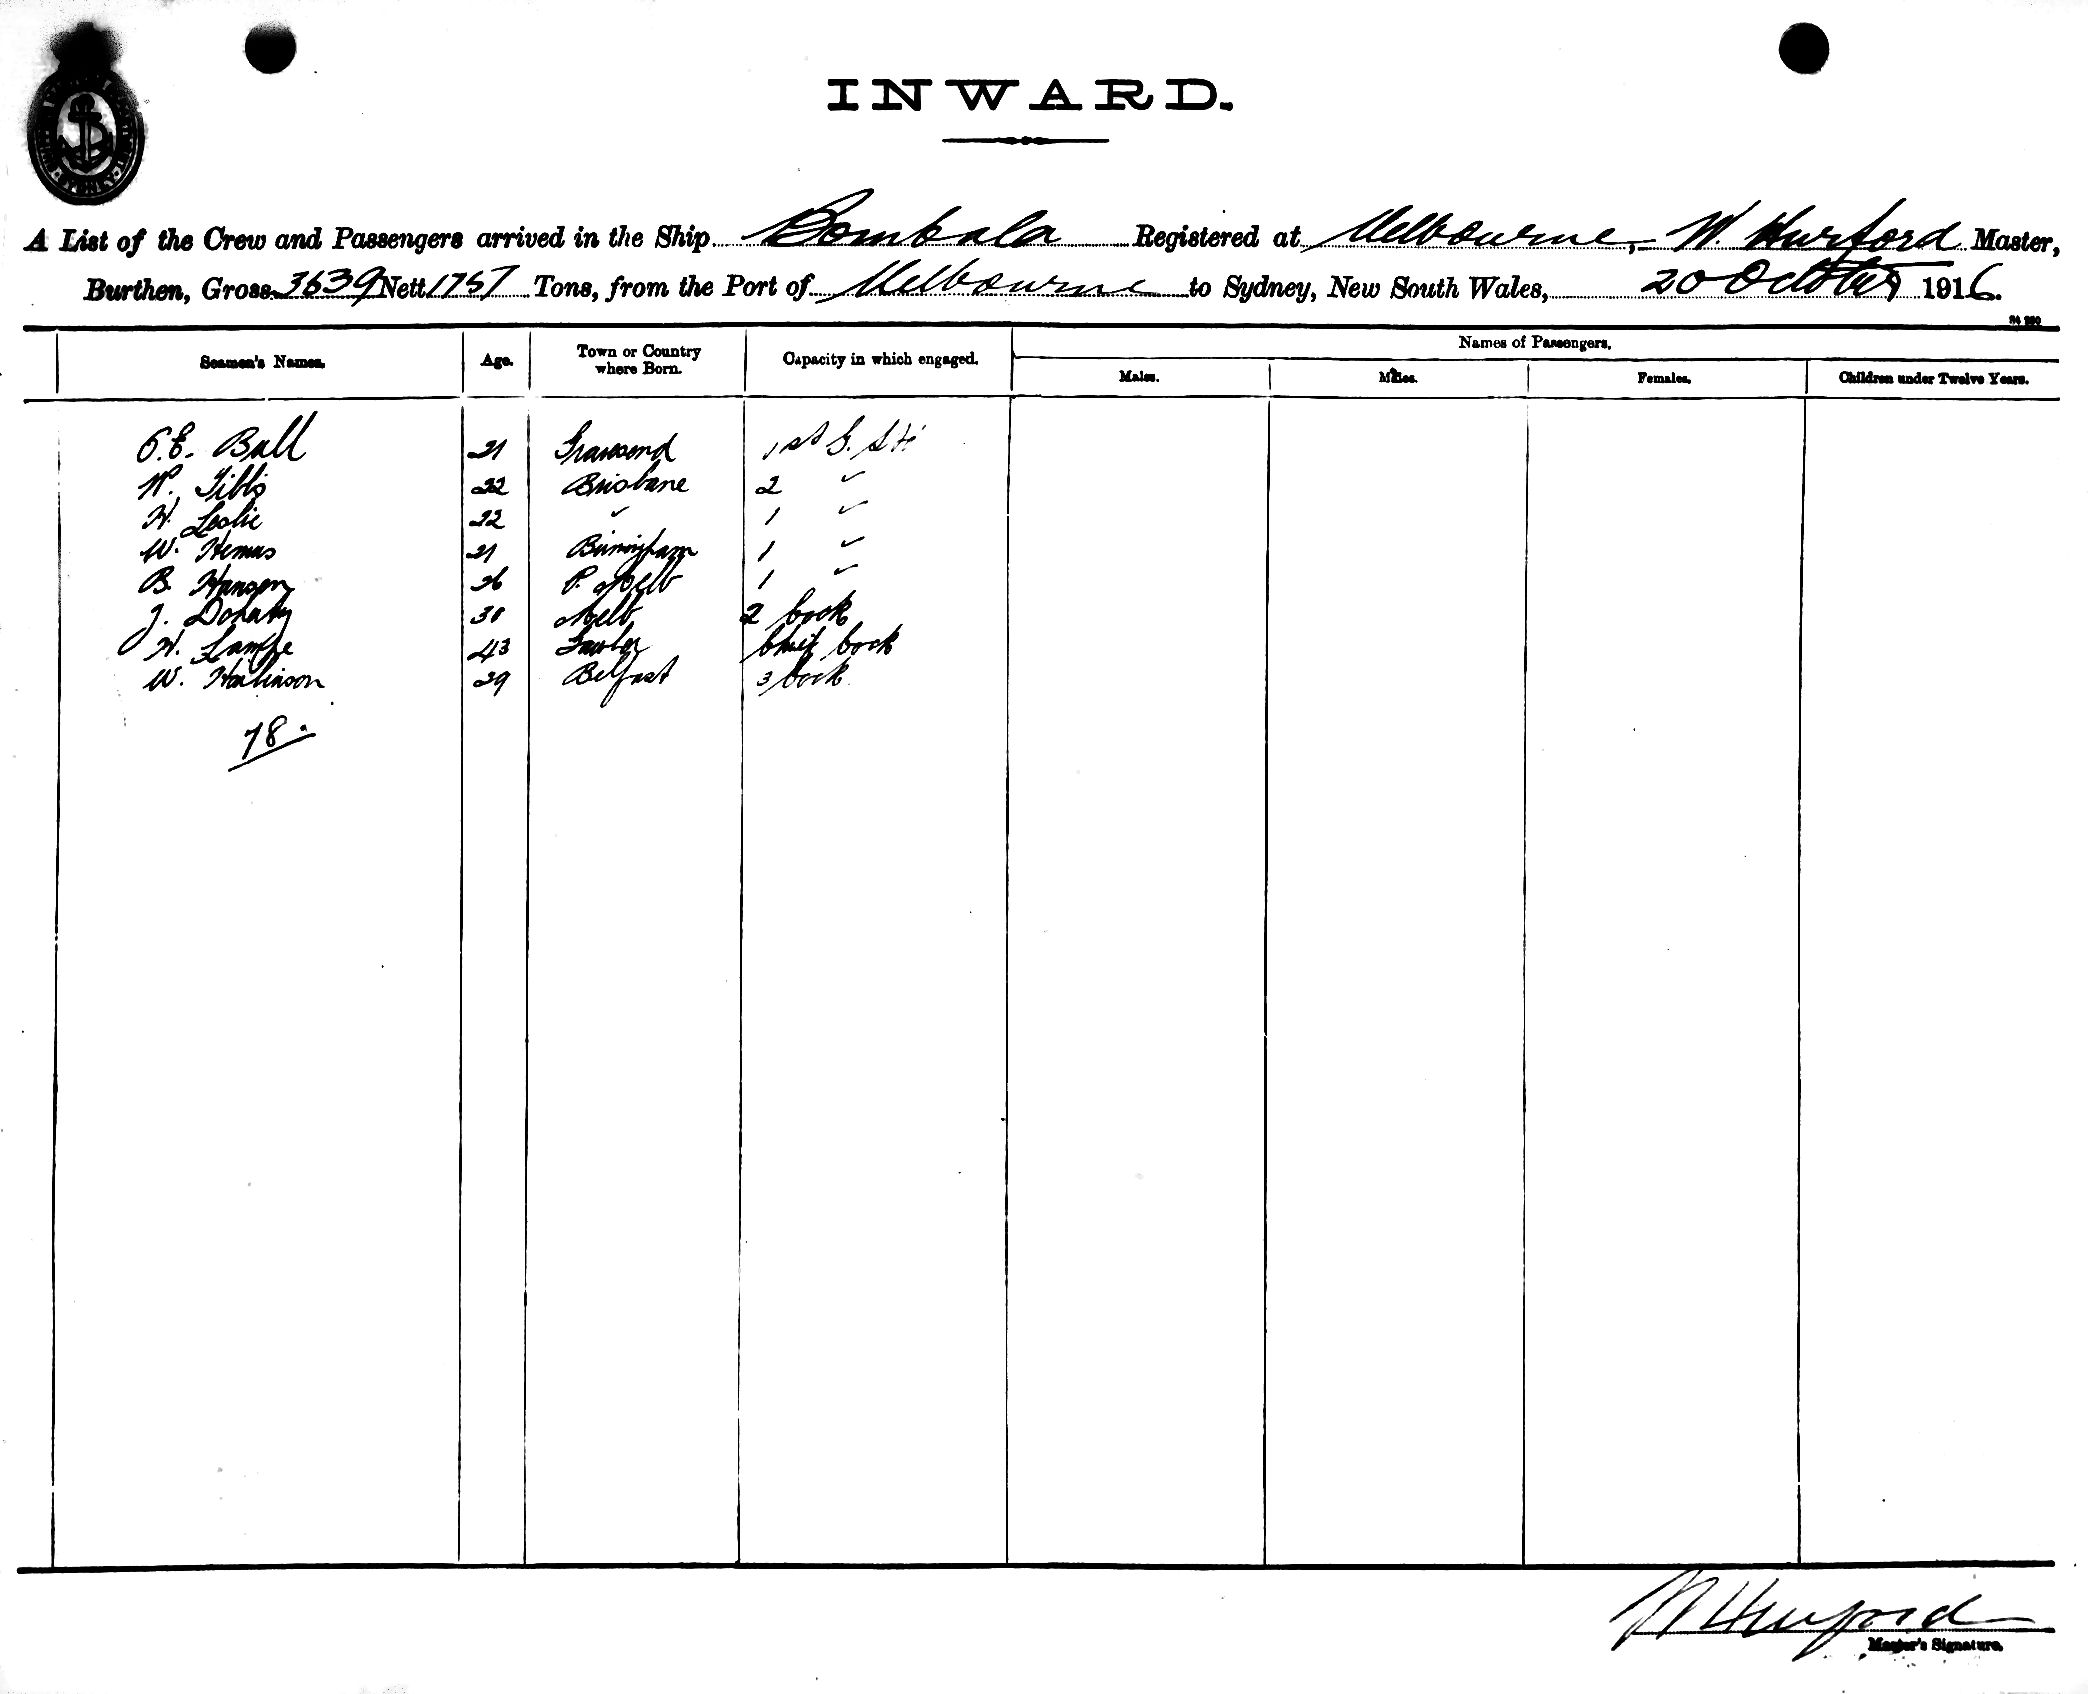 INWARD.
A List of the Crew and Passengers arrived in the Ship Bombala Registered at Melbourne, W. Hurford Master,
Burthen, Gross 3639 Nett 1757 Tons, from the Port of Melbourne to Sydney, New South Wales, 20 October 1916.
Names of Passengers.
Seamen's Names. Age. Town or Country where Born. Capacity in which engaged. Males. Males. Females. Children under Twelve Years.
Ball 21 Gravesend 1st G.
W. Gibbs 22 Brisbane 2 "
H. Leslie 22 " 1 "
W. Hemus 21 Birmingham 1 "
B. Hansen 26 P. Melb 1 "
J. Doherty 30 Melb 2 Cook
H. 43 Gawler Chief Cook
W. 29 Belfast 3 Cook
78.
W Hurford
Master's Signature.